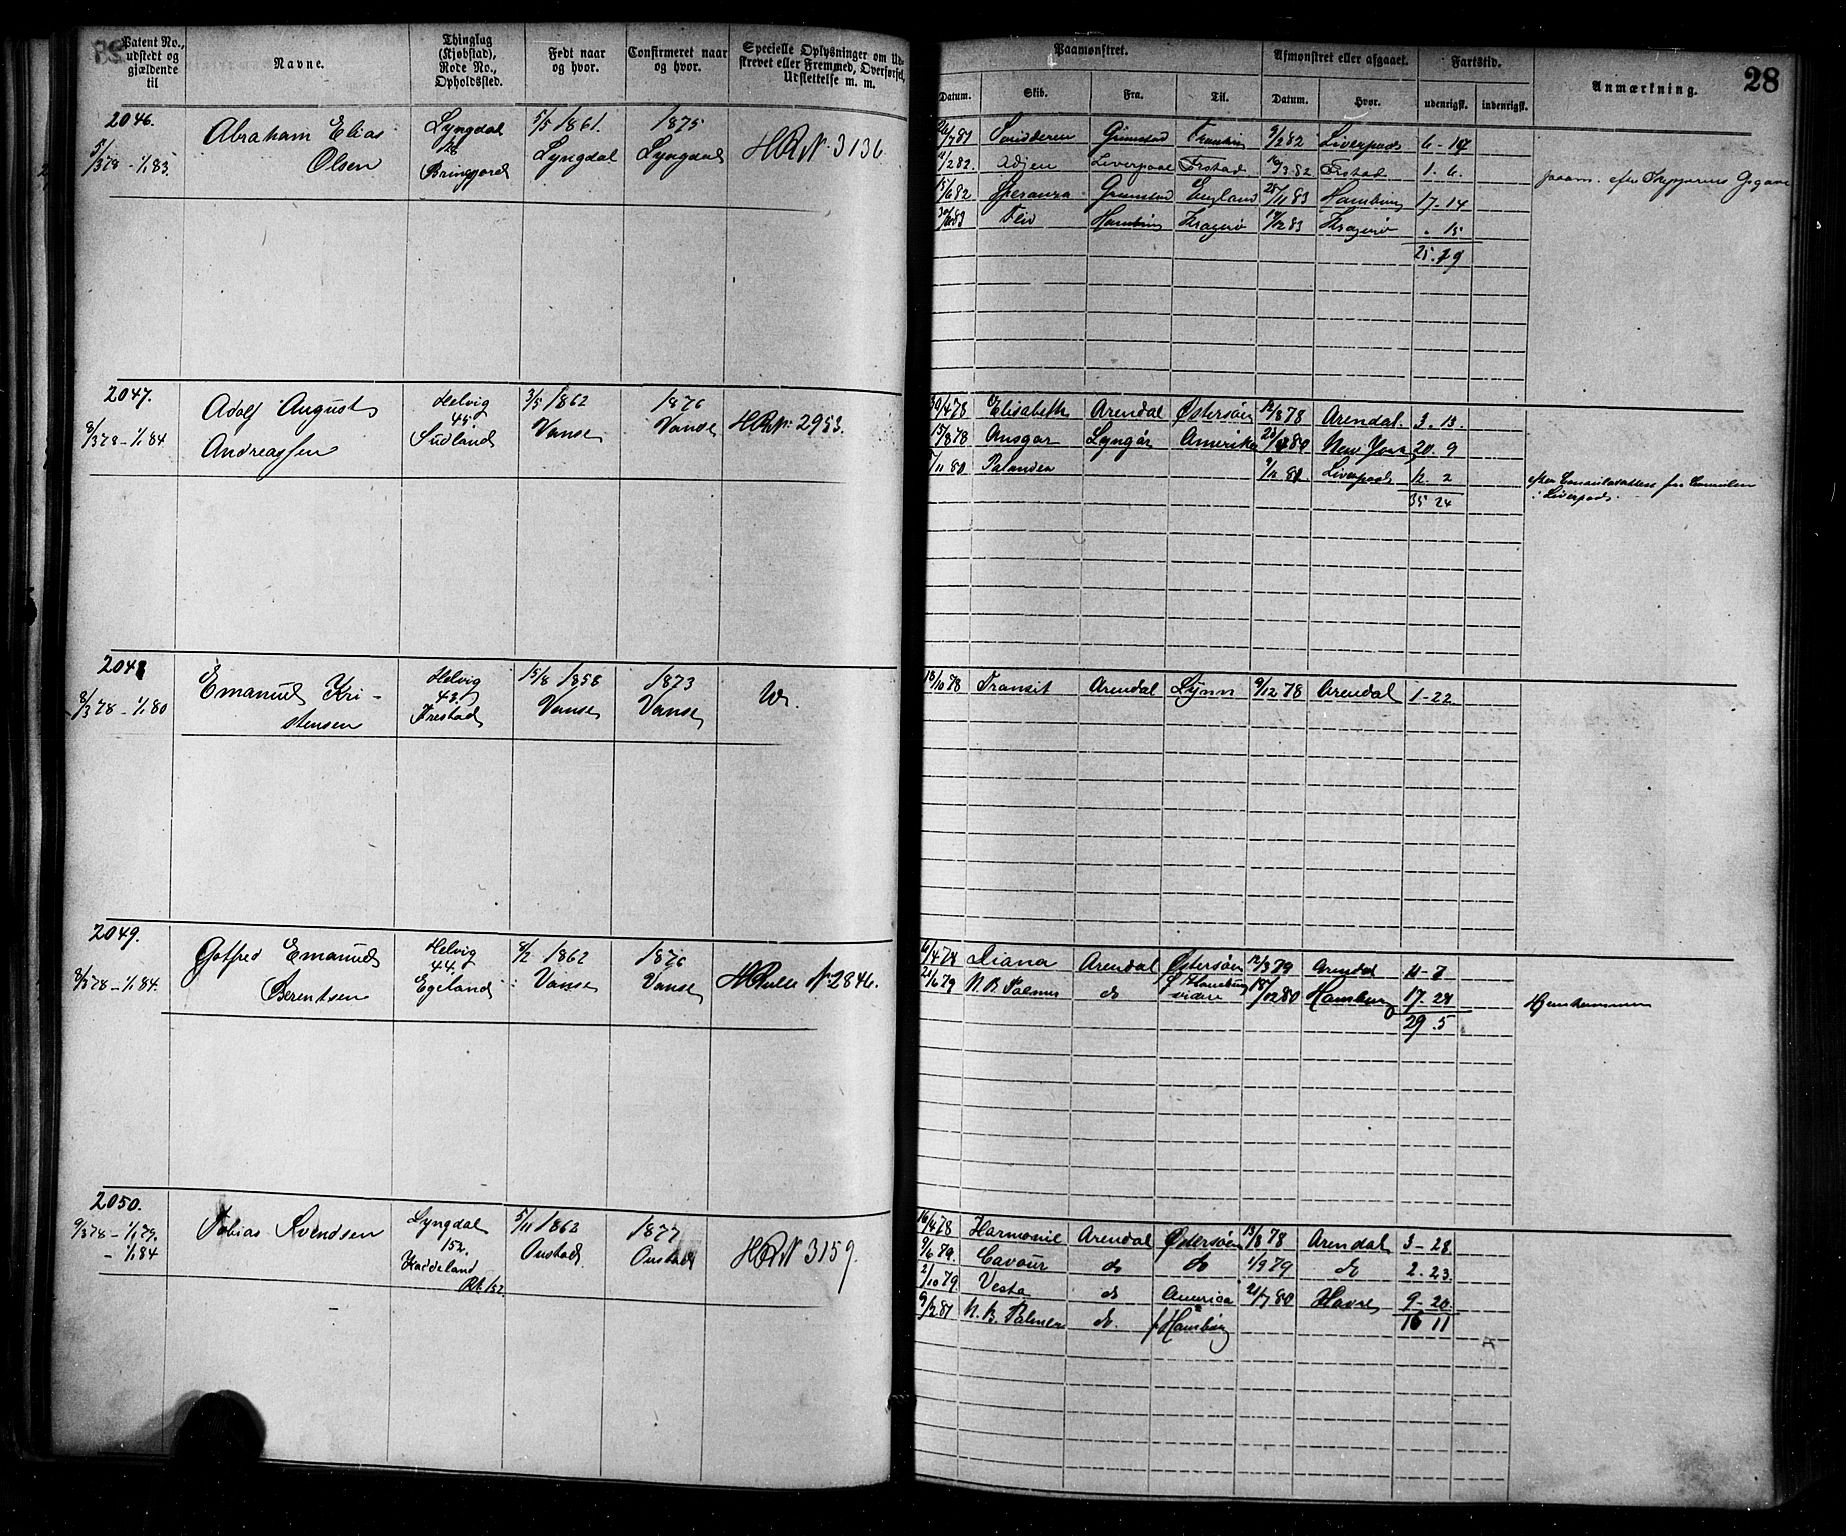 Patent No., udstedt og gjældende til
Navne.
Thinglag (Kjøbstad), Rode No., Opholdssted.
Født naar og hvor.
Confirmeret naar og hvor.
Specielle Oplysninger om Udskrevet eller Fremmed, Overførsel, Udslettelse m. m.
Paamønstret.
Afmønstret eller afgaaet.
Fartstid.
Anmærkning.
28
Datum. Skib. Fra. Til. Datum. Hvor. udenrigsk. indenrigsk.
2046.
5/3 78 - 1/1 83.
Abraham Elias
Olsen
Lyngdal
5/5 1861.
Lyngdal
1875
Lyngdal
HR N 3136
Grimstad 9/2 82 Liverpool 6 - 14
11/2 82. Liverpool 16/3 82 1. 6.
15/6 82 Speranza Grimstad England 25/11 83 Hamburg 17 - 14
Hamburg Kragerø 14/12 83 Kragerø . 15
25. 19
2047.
8/3 78 - 1/1 84
Adolf August
Andreassen
Helvig
45.
Sudland
3/5 1862
Vanse
1876
Vanse
HR N: 2953.
30/4 78 Elisabeth Arendal Østersøen 12/8 78 Arendal. 3. 13.
15/8 78 Ansgar Lyngør Amerika New York 20. 9
Liverpool 12. 2
35 24
i Liverpool.
2048
8/3 78 - 1/1 80
Emanuel Kri-
stensen
Helvig
43.
Frestad
15/8 1858
Vanse
1873
Vanse
W.
18/10 78 Transit Arendal Lynn 9/12 78 Arendal 1 - 22
2049.
8/3 78 - 1/1 84.
Gotfred Emanuel
Berentsen
Helvig
44.
Egeland
8/2 1862
Vanse
1876
Vanse
HRulle N: 2846.
6/4 78 Diana Arendal Østersøen 12/3 79 Arendal 11 - 7
21/6 79 N. B. Palmer do f/Hamburg videre 18/12 80 Hamburg 17. 28
29. 5
Hjemkommen
2050.
9/3 78 - 1/1 79.
- 1/1 84
Tobias Svendsen
Lyngdal
152.
Kaddeland
5/11 1862
Onstad
1877
Onstad
HR N 3159.
16/4 78 Harmonie Arendal Østersøen 13/8 78 Arendal 3 - 28
9/6 79. Cavour do do 1/9 79 do 2. 23.
2/10 79. Vesta do America 21/7 80 Havre 9 - 20
9/2 81 N. B. Palmer do. f/Hamburg 16 11